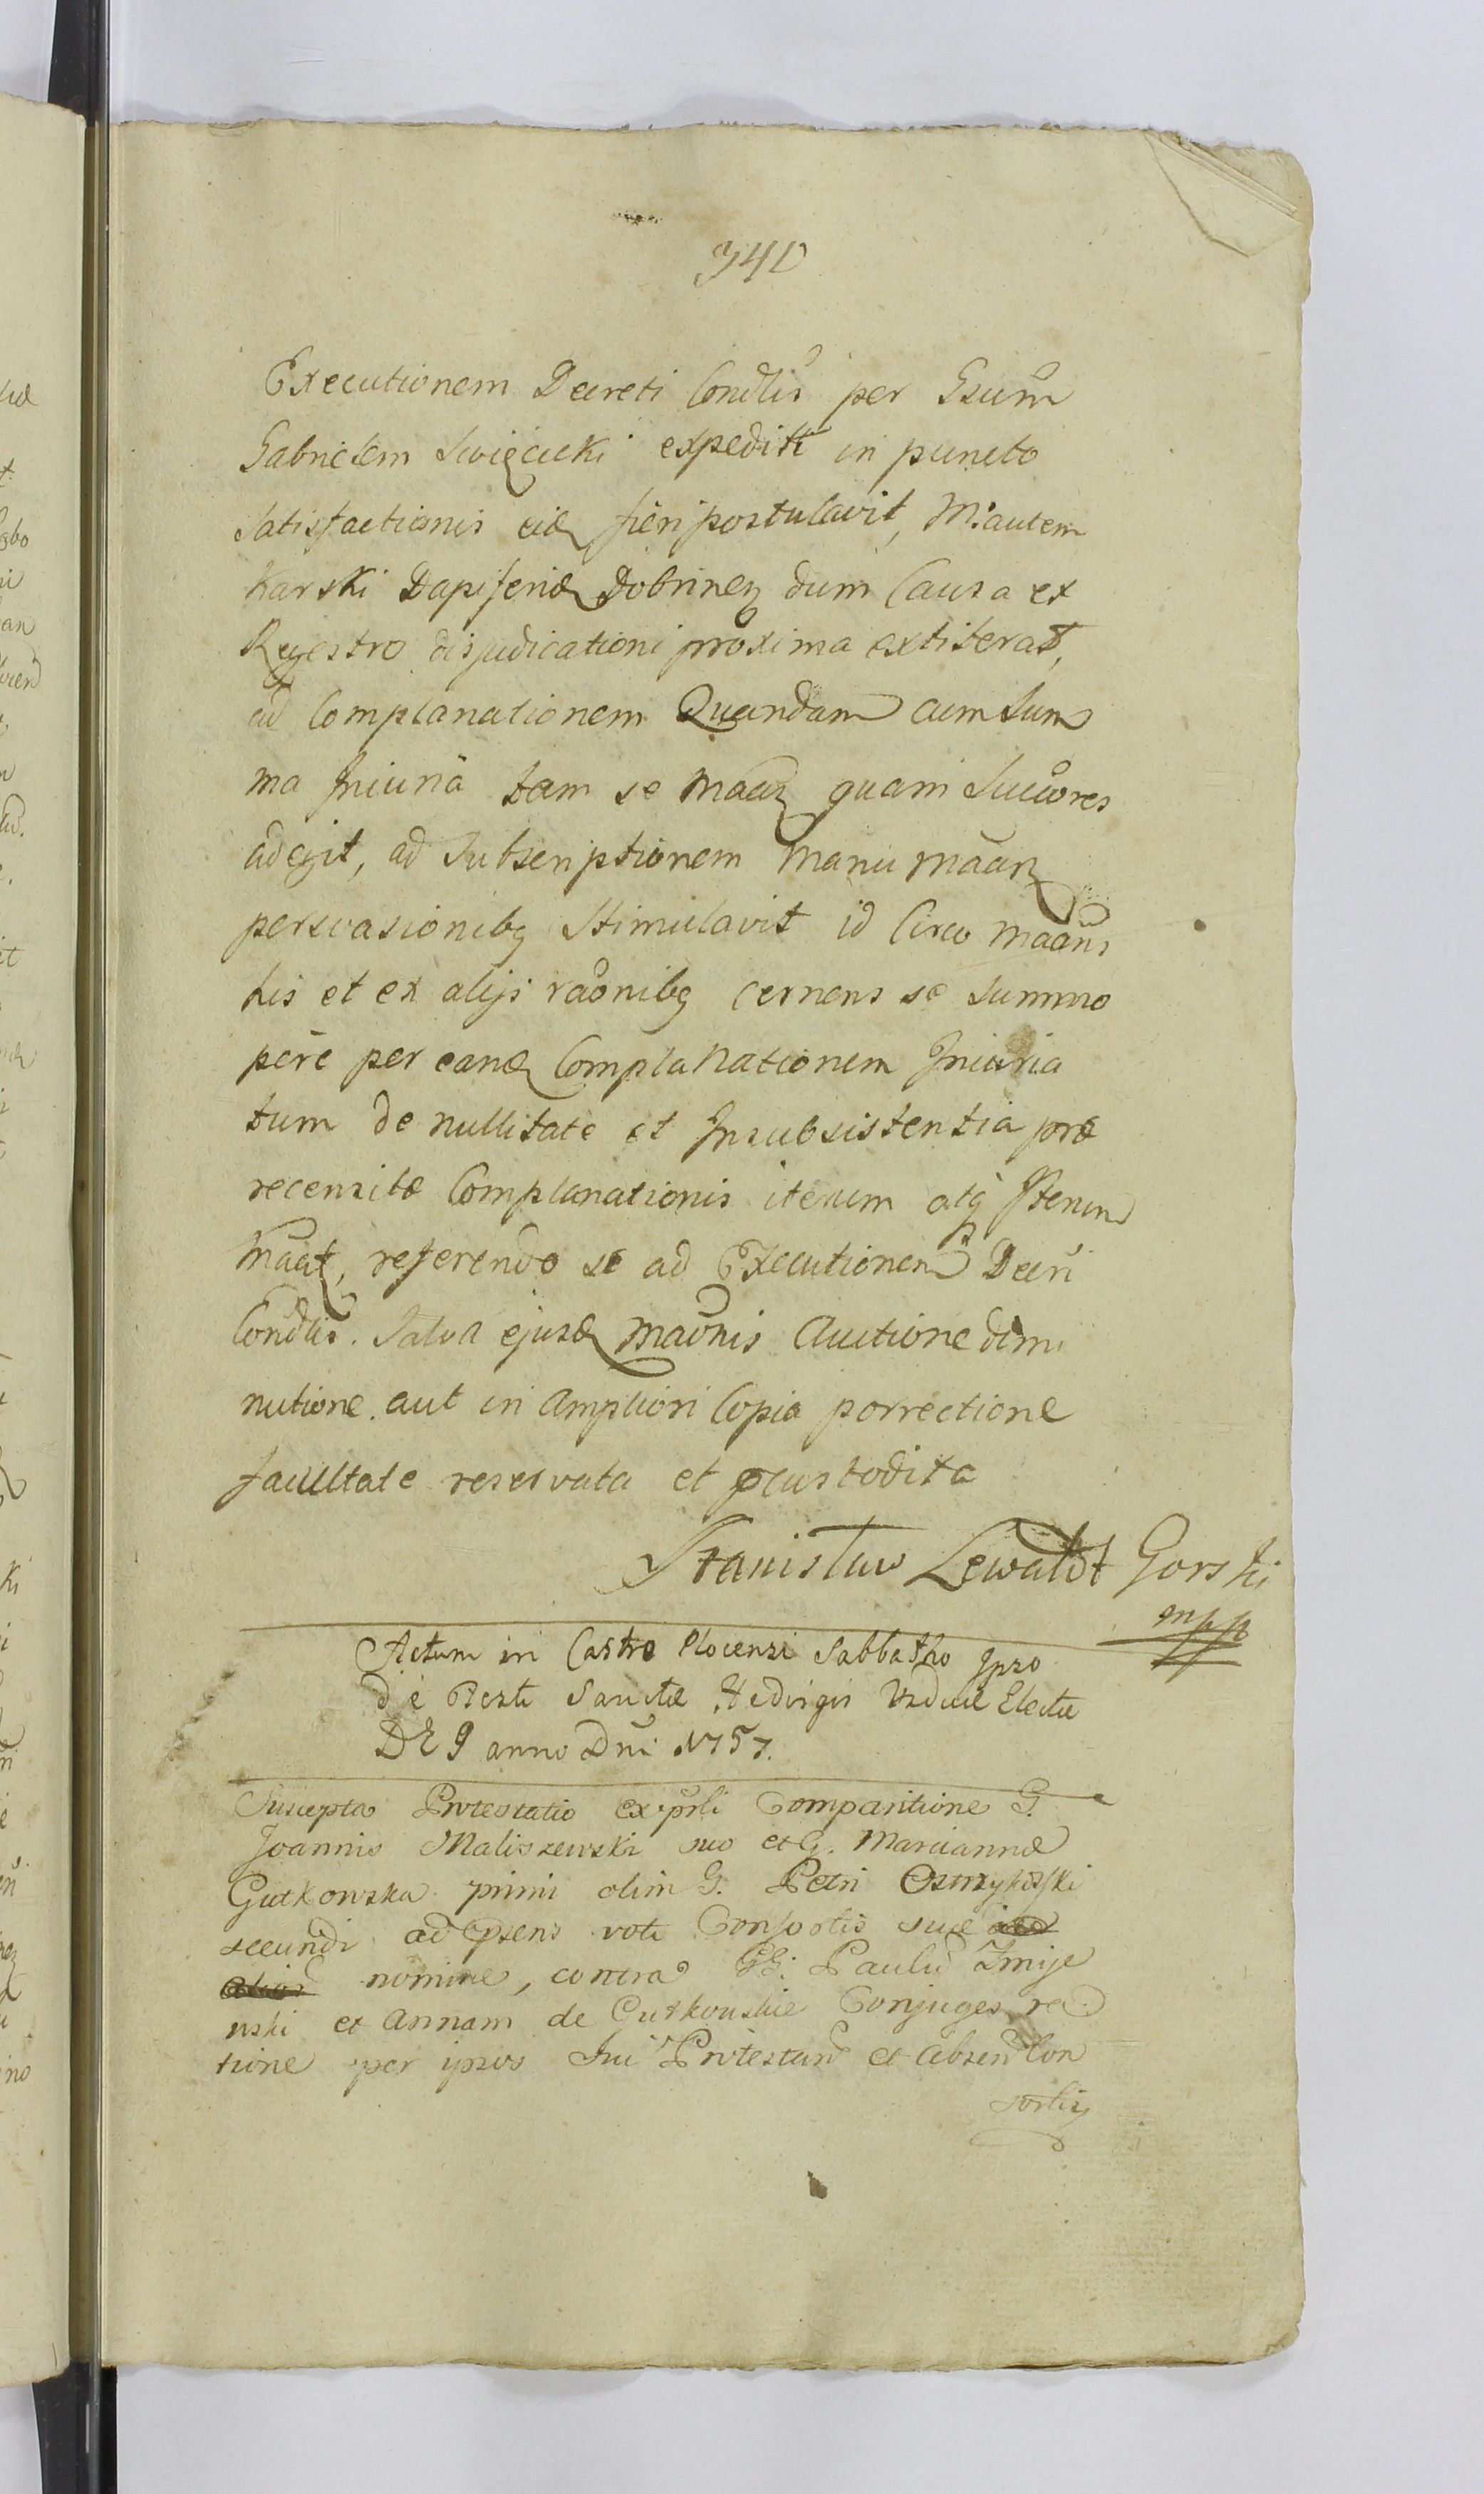 340
Executionem Decreti Condlis per Gsum
Gabrielem Swięcicki expediti in puncto
Satisfactionis eid fieri postulavit, M: autem
Karski Dapiferid Dobrinen dum Causa ex
Regestro disjudicationi proxima extiterat,
ad Complanationem Quandam cum Sum
ma Iniuria tam se maan quam Succores
adegit, ad Subscriptionem Manu maan
persvasionibq Stimulavit id Circo maans
his et ex alijs raonibq cernens se Summo
pere per eand Complanationem Iniuria
tum de nullitate et Insubsistentia præ
recensitæ Complanationis iterum atq Iterum
maat, referendo se ad Executionem Decri
Condlis. Salva ejusd maonis Auctione dimi
nutione aut in Ampliori Copia porrectione
facultate reservata et custodita
Stanisław Lewaldt Gorski
mpp
Actum in Castro Plocensi Sabbatho Ipso
die Festi Sanctæ Hedvigis Viduæ Electæ
DEI anno Dni 1757.
Suscepta Protestatio ex prli Comparitione G.
Joannis Maliszewski suo et G. Mariannæ
Gutkowska primi olim G. Petri
secundi ad psens voti Consortis suæ
nomine, contra GG: Paulu Zmije
wski et Annam de Gutkowskie Conjuges ra
tione per ipsos Sui Protestan et absen Con
sortis